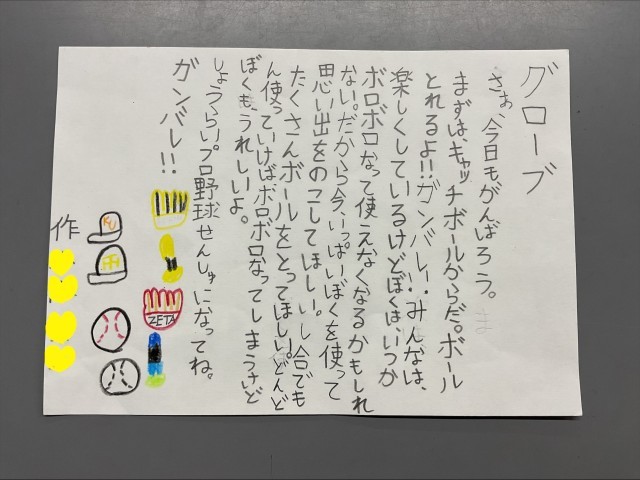 グローブ
さぁ、今日もがんばろう。
まずは、キャッチボールからだ。ボール
とれるよ!!ガンバレ!!みんなは、
楽しくしているけどぼくは、いつか
ボロボロなって使えなくなるかもしれ
ない。だから今、いっぱいぼくを使って
思い出をのこしてほしい。し合でも
たくさんボールをとってほしい。どんど
ん使っていけばボロボロなってしまうけど
ぼくも、うれしいよ。
しょうらいプロ野球せんしゅになってね。
ガンバレ!!
ZETA
作